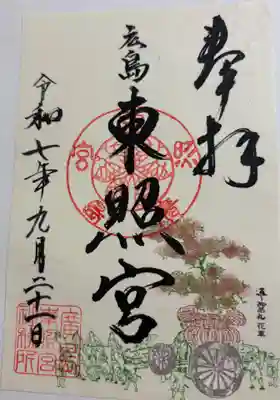 奉拝
広島
東照宮
令和七年九月二十一日